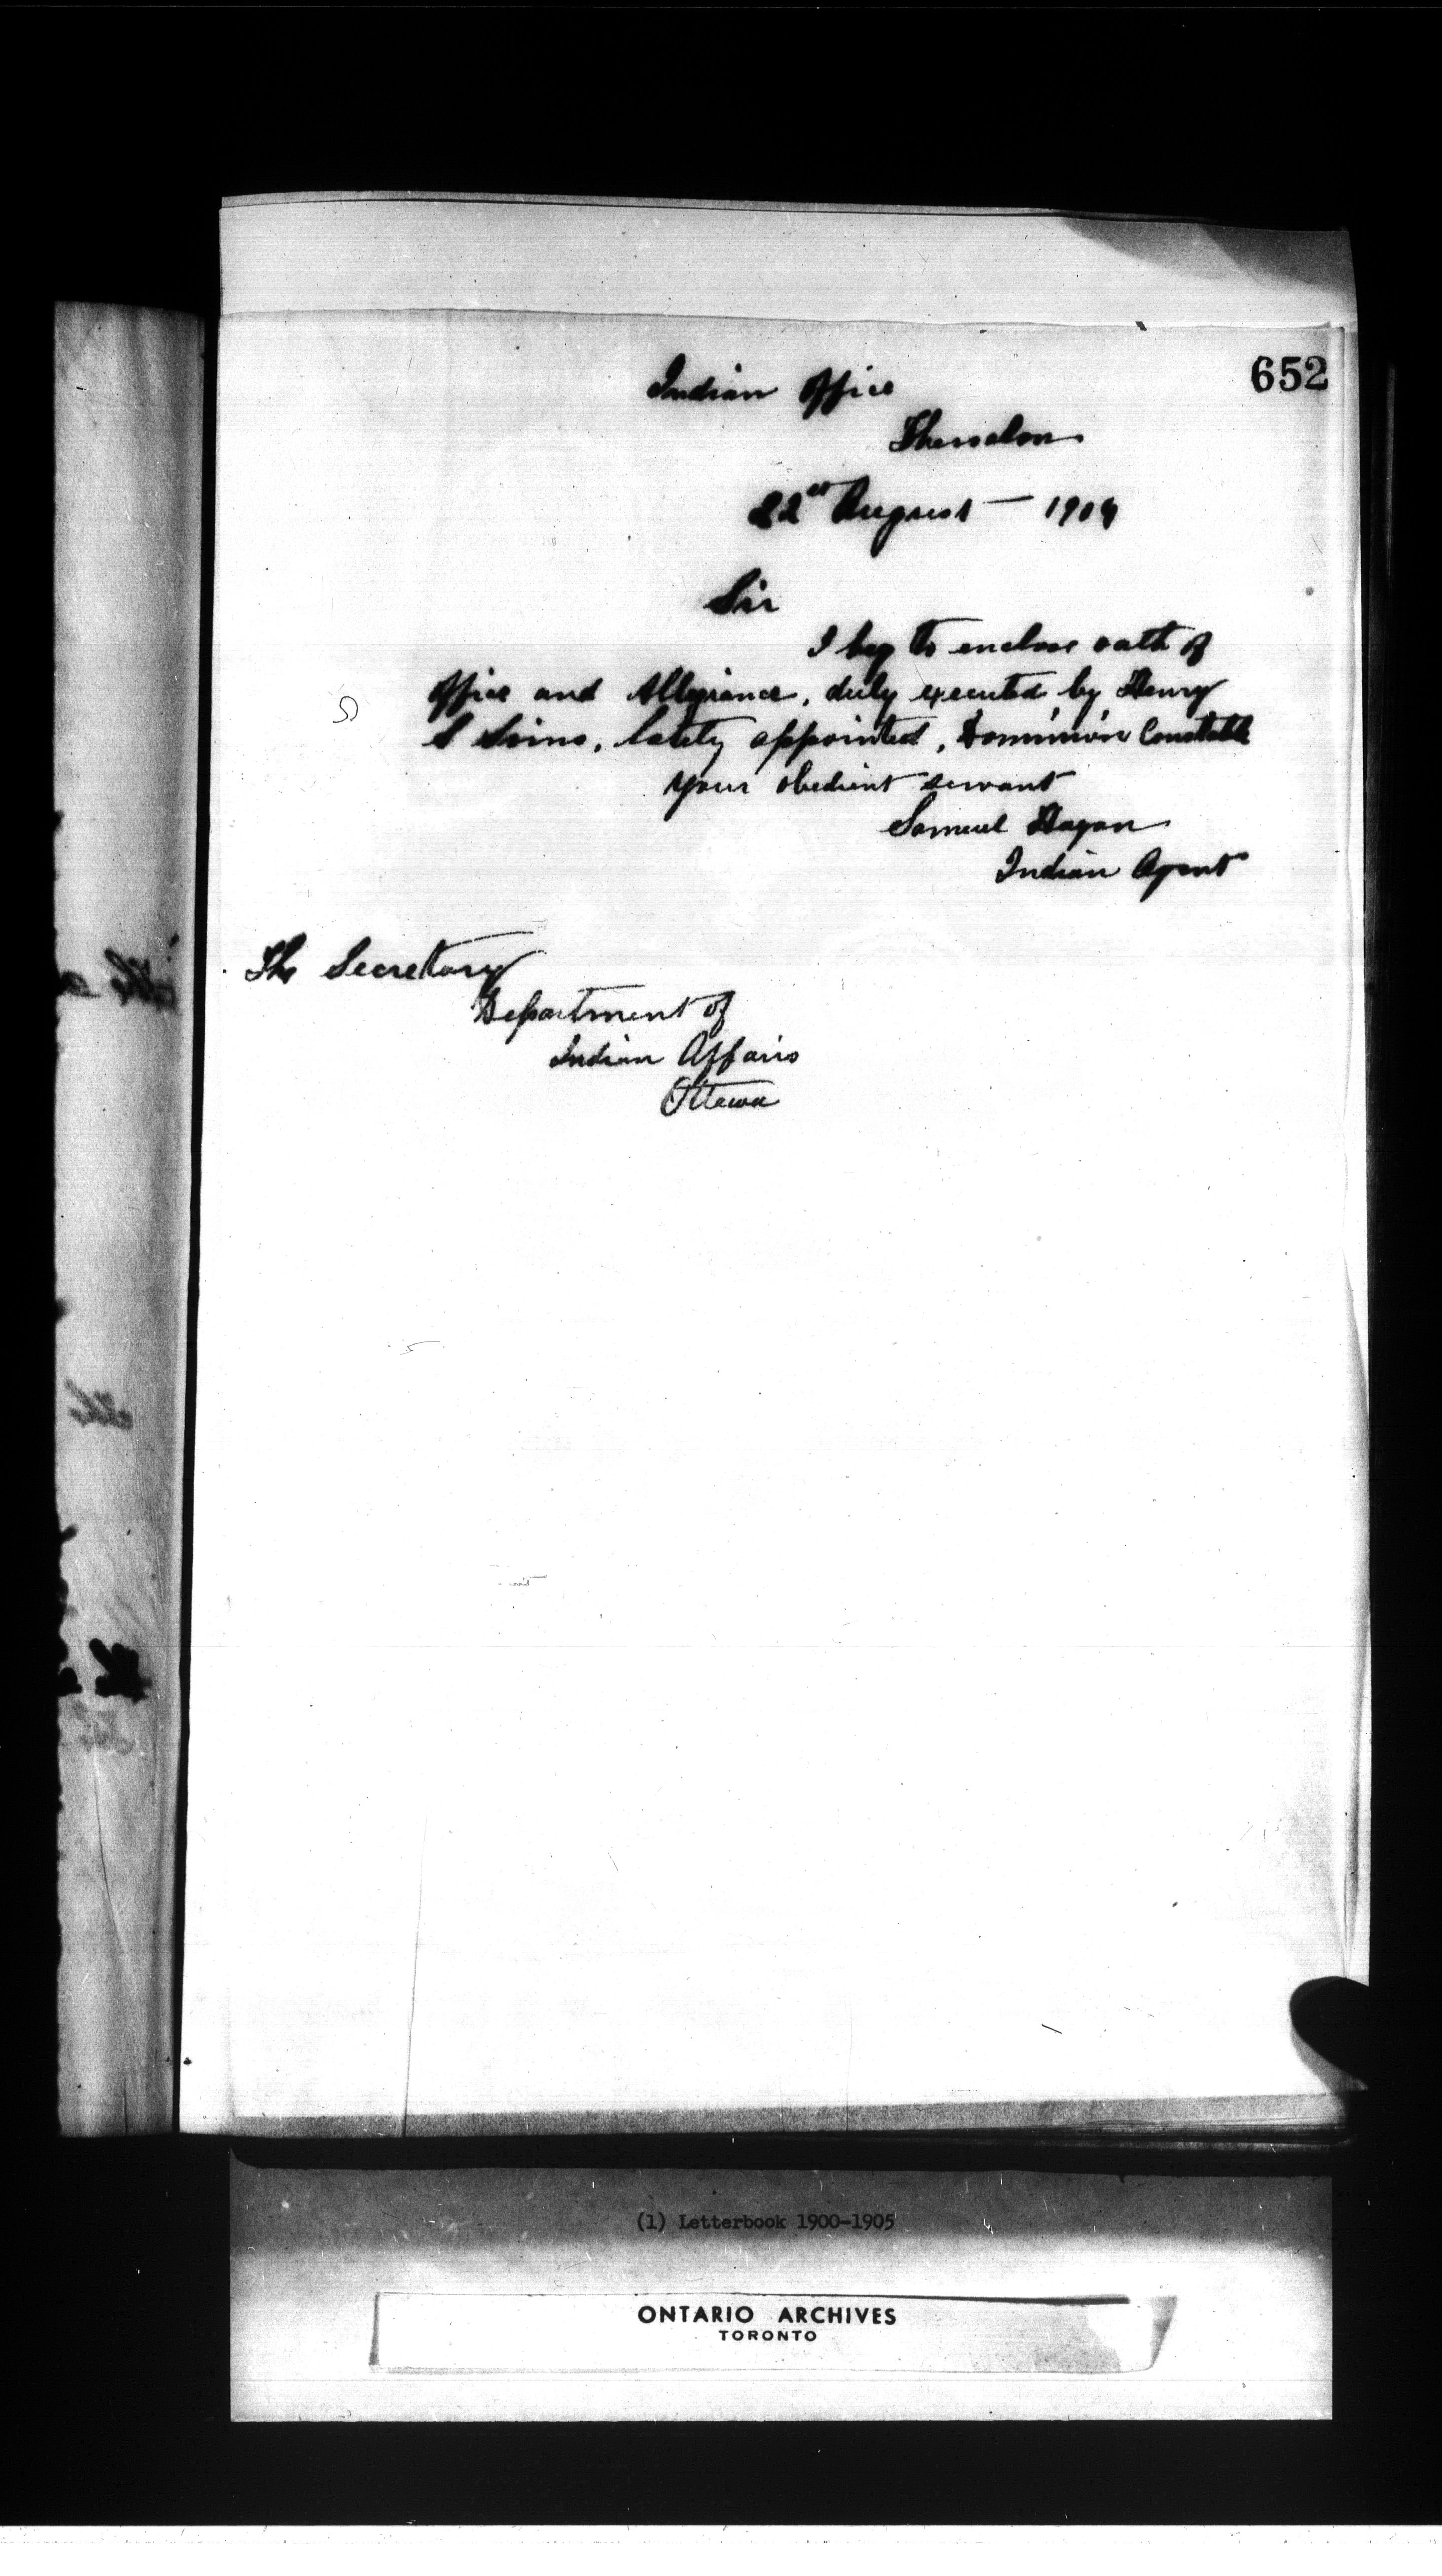 652
Indian Office
Thessalon
22nd August — 1904
Sir
I beg to enclose oath of
Office and Allegiance, duly executed, by Henry
S Sims, lately appointed, Dominion Constable
Your obedient servant
Samuel Hagan
Indian Agent
The Secretary
Department of
Indian Affairs
Ottawa
(1) Letterbook 1900-1905
ONTARIO ARCHIVES
TORONTO